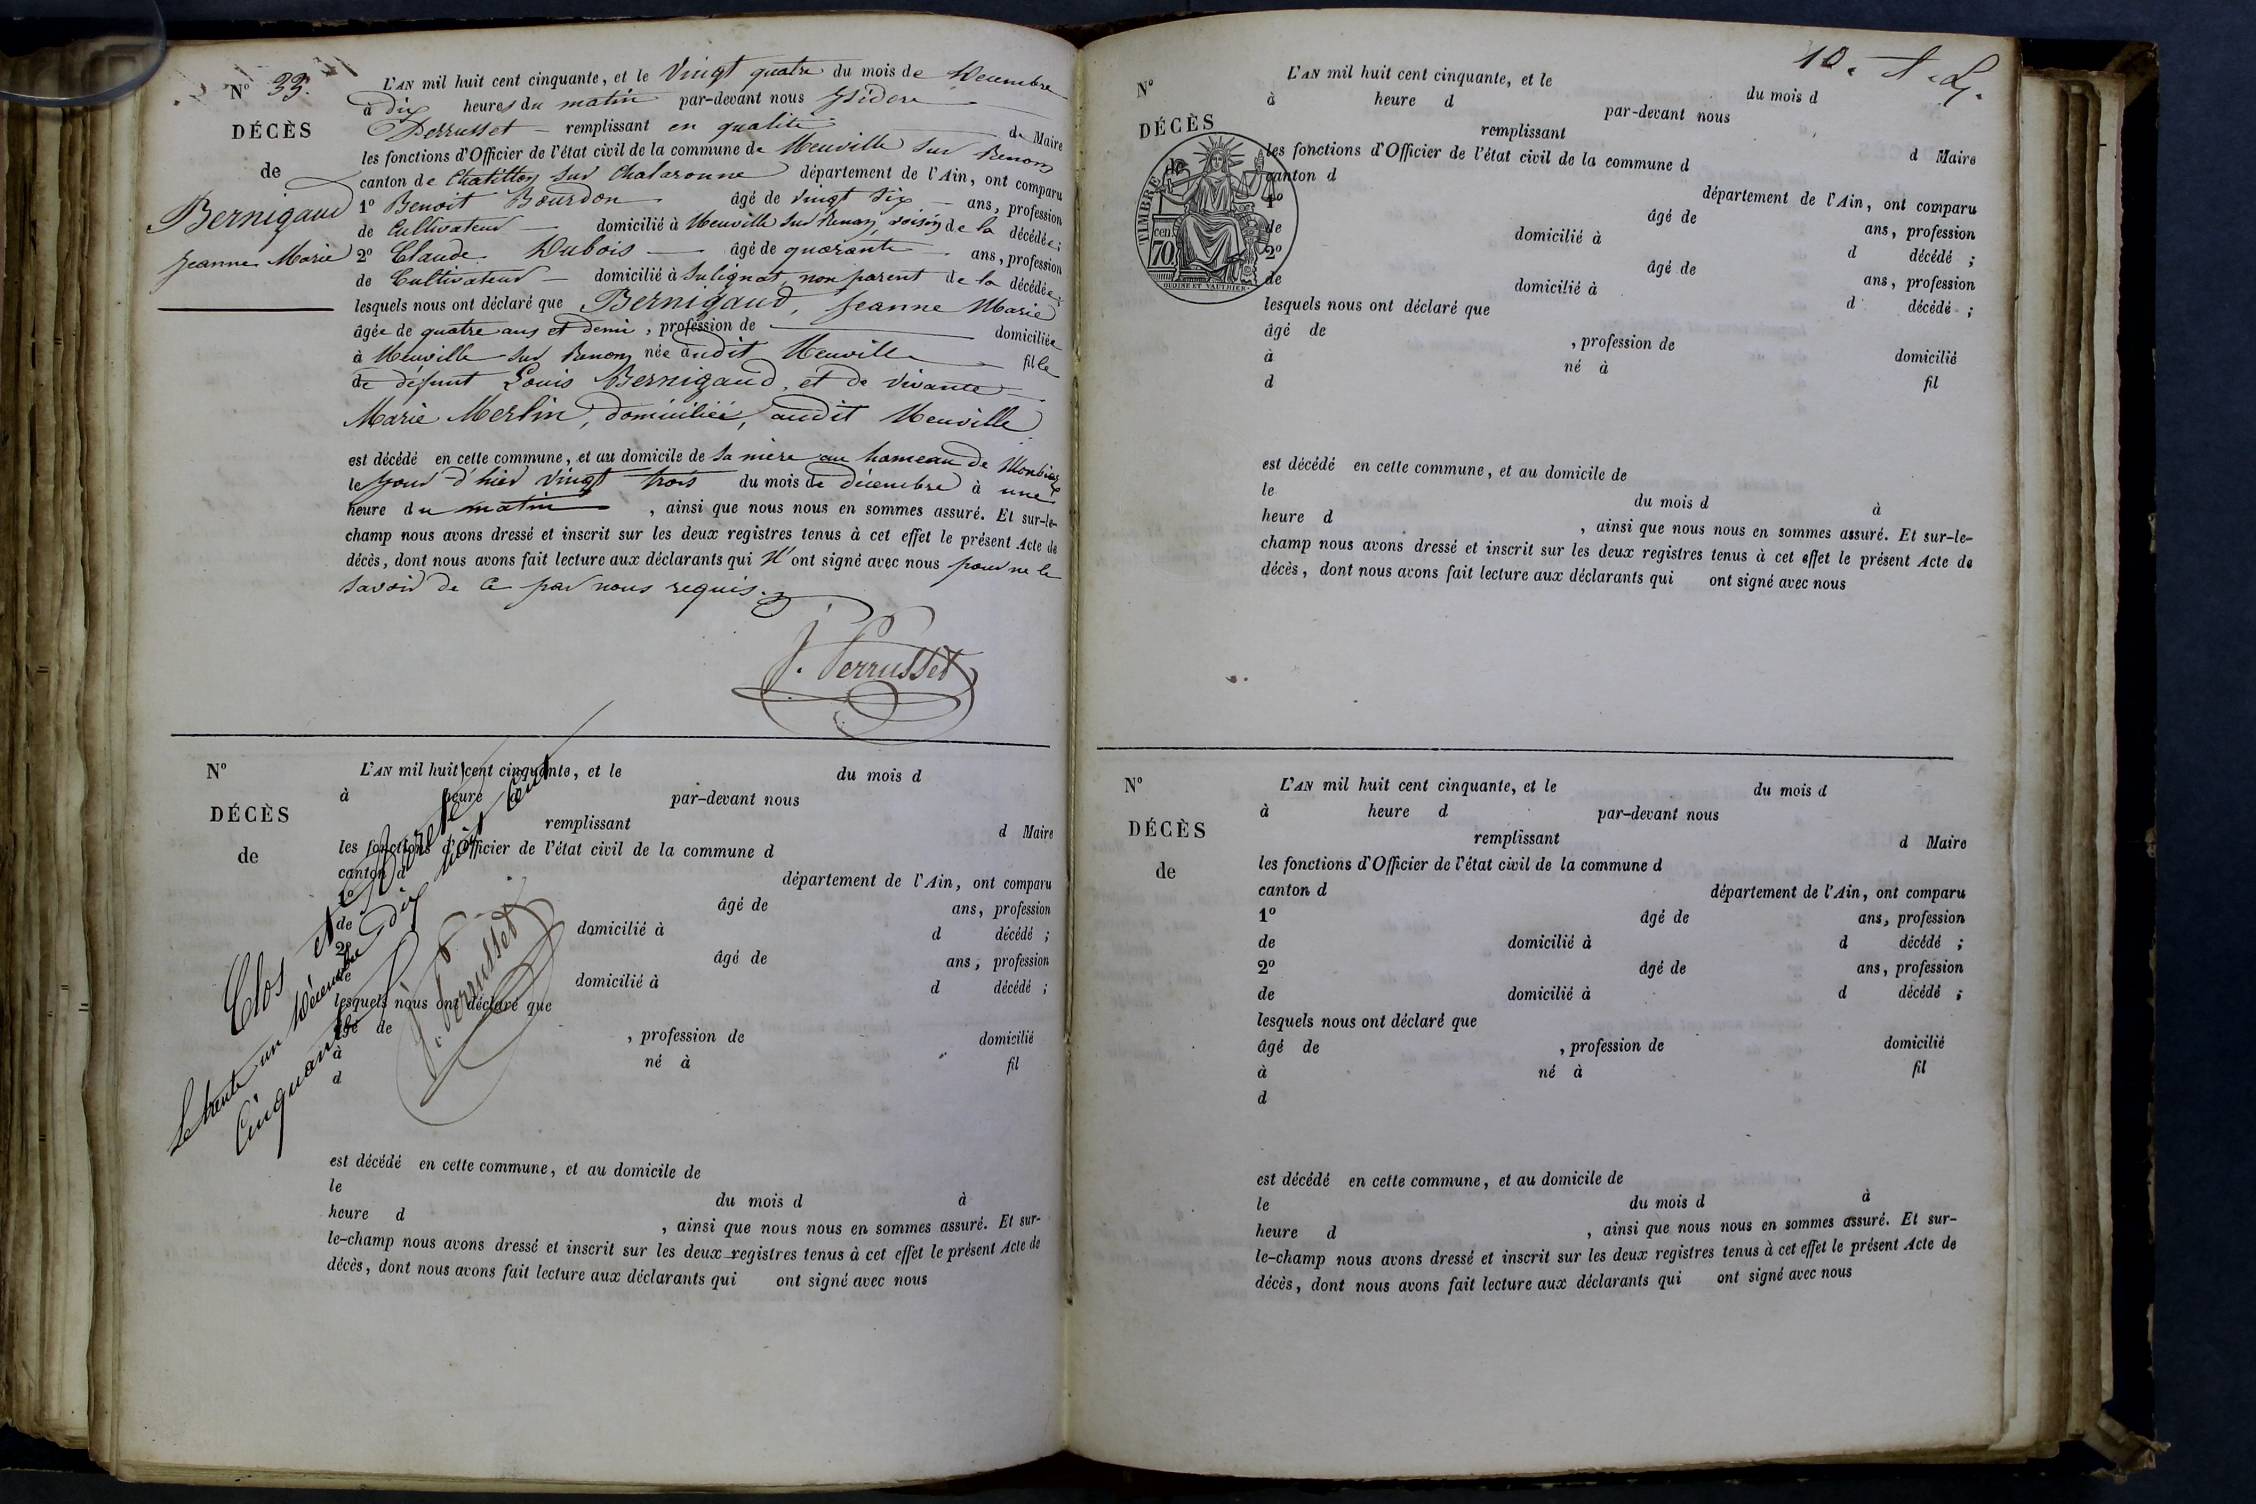 N° 33.
DÉCÈS
de
Bernigaud
Jeanne Marie
L'AN mil huit cent cinquante, et le Vingt quatre du mois de Décembre
à Dix heures du matin par-devant nous Isidore
Perrusset remplissant en qualité de Maire
les fonctions d'Officier de l'état civil de la commune de Neuville sur Renom
canton de Chatillon sur Chalaronne département de l'Ain, ont comparu
1° Benoit Bourdon âgé de vingt six ans, profession
de Cultivateur domicilié à Neuville sur Renom, voisin de la décédée ;
2° Claude Dubois âgé de quarante ans, profession
de Cultivateur domicilié à Sulignat, non parent de la décédée ;
lesquels nous ont déclaré que Bernigaud, Jeanne Marie
âgée de quatre ans et demi, profession de domiciliée
à Neuville sur Renom née audit Neuville fille
de défunt Louis Bernigaud, et de vivante
Marie Merlin, domiciliée, audit Neuville
est décédé en cette commune, et au domicile de sa mère au hameau de
le jour d'hier vingt trois du mois de décembre à une
heure du matin, ainsi que nous nous en sommes assuré. Et sur-le-
champ nous avons dressé et inscrit sur les deux registres tenus à cet effet le présent Acte de
décès, dont nous avons fait lecture aux déclarants qui n'ont signé avec nous pour ne le
savoir de ce par nous requis.
J. Perrusset
N°
DÉCÈS
de
L'AN mil huit cent cinquante, et le du mois d
à heure d par-devant nous
remplissant d Maire
les fonctions d'Officier de l'état civil de la commune d
canton d département de l'Ain, ont comparu
1° âgé de ans, profession
de domicilié à d décédé ;
2° âgé de ans, profession
de domicilié à d décédé ;
lesquels nous ont déclaré que
âgé de , profession de domicilié
à né à fil
d
est décédé en cette commune, et au domicile de
le du mois d à
heure d , ainsi que nous nous en sommes assuré. Et sur-
le-champ nous avons dressé et inscrit sur les deux registres tenus à cet effet le présent Acte de
décès, dont nous avons fait lecture aux déclarants qui ont signé avec nous
Clos et arrêté
Le trente un Décembre dix huit cent
Cinquante
J. Perrusset
10.
N°
DÉCÈS
de
TIMBRE
70
cen.
OUDINÉ ET VAUTHIER
L'AN mil huit cent cinquante, et le du mois d
à heure d par-devant nous
remplissant d Maire
les fonctions d'Officier de l'état civil de la commune d
canton d département de l'Ain, ont comparu
1° âgé de ans, profession
de domicilié à d décédé ;
2° âgé de ans, profession
de domicilié à d décédé ;
lesquels nous ont déclaré que
âgé de , profession de domicilié
à né à fil
d
est décédé en cette commune, et au domicile de
le du mois d à
heure d , ainsi que nous nous en sommes assuré. Et sur-le-
champ nous avons dressé et inscrit sur les deux registres tenus à cet effet le présent Acte de
décès, dont nous avons fait lecture aux déclarants qui ont signé avec nous
N°
DÉCÈS
de
L'AN mil huit cent cinquante, et le du mois d
à heure d par-devant nous
remplissant d Maire
les fonctions d'Officier de l'état civil de la commune d
canton d département de l'Ain, ont comparu
1° âgé de ans, profession
de domicilié à d décédé ;
2° âgé de ans, profession
de domicilié à d décédé ;
lesquels nous ont déclaré que
âgé de , profession de domicilié
à né à fil
d
est décédé en cette commune, et au domicile de
le du mois d à
heure d , ainsi que nous nous en sommes assuré. Et sur-
le-champ nous avons dressé et inscrit sur les deux registres tenus à cet effet le présent Acte de
décès, dont nous avons fait lecture aux déclarants qui ont signé avec nous